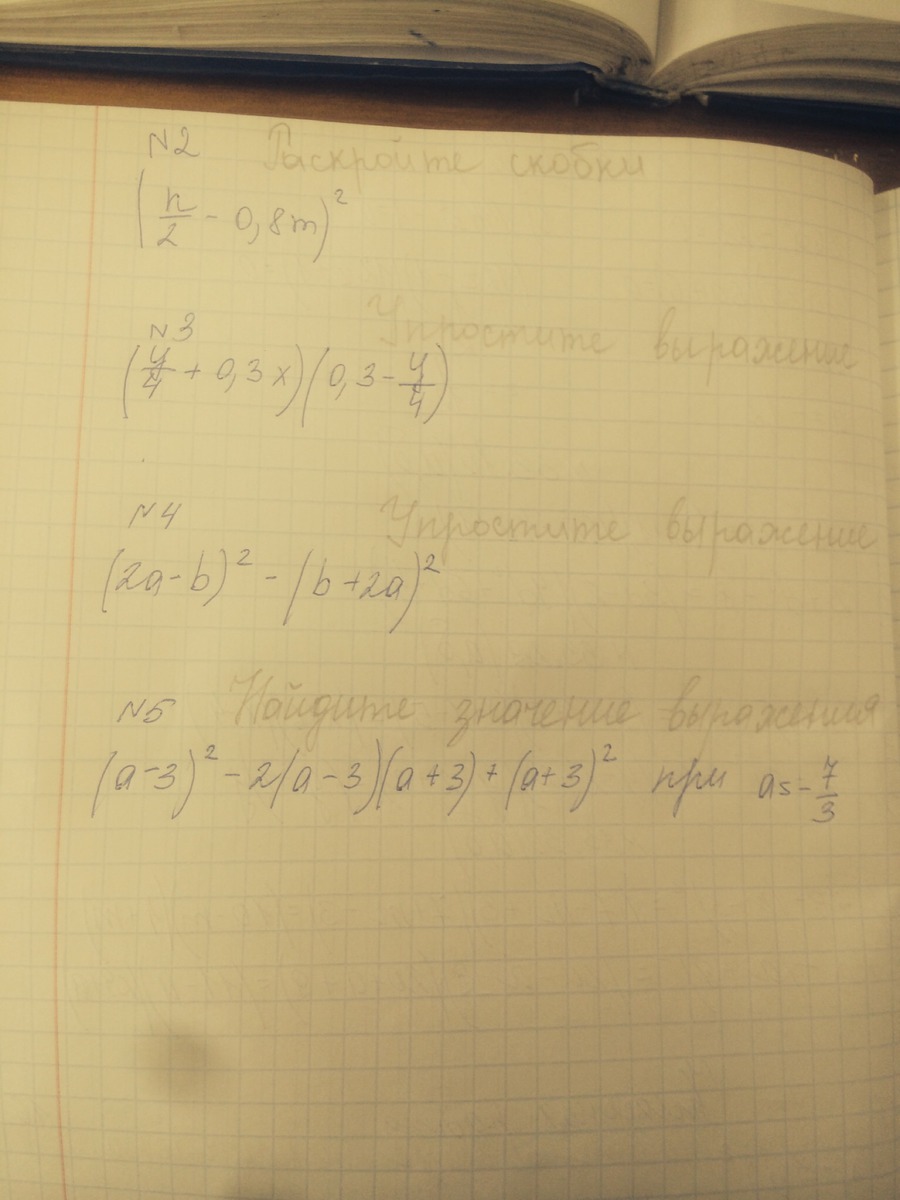 N2 Раскройте скобки
(n/2 - 0,8m)²
N3 Упростите выражение
(y/4 + 0,3x)(0,3 - y/4)
N4 Упростите выражение
(2a - b)² - (b + 2a)²
N5 Найдите значение выражения
(a - 3)² - 2(a - 3)(a + 3) + (a + 3)² при a = -7/3